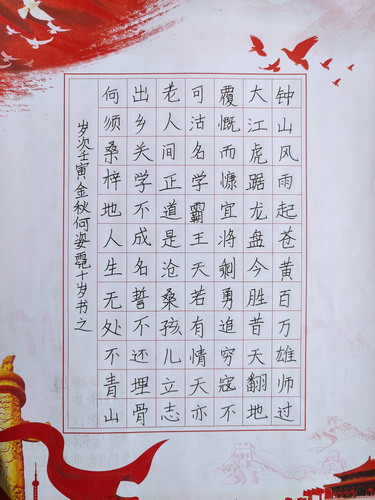 钟山风雨起苍黄百万雄师过
大江虎踞龙盘今胜昔天翻地
覆慨而慷宜将剩勇追穷寇不
可沽名学霸王天若有情天亦
老人间正道是沧桑孩儿立志
出乡关学不成名誓不还埋骨
何须桑梓地人生无处不青山
岁次壬寅金秋何姿霓十岁书之